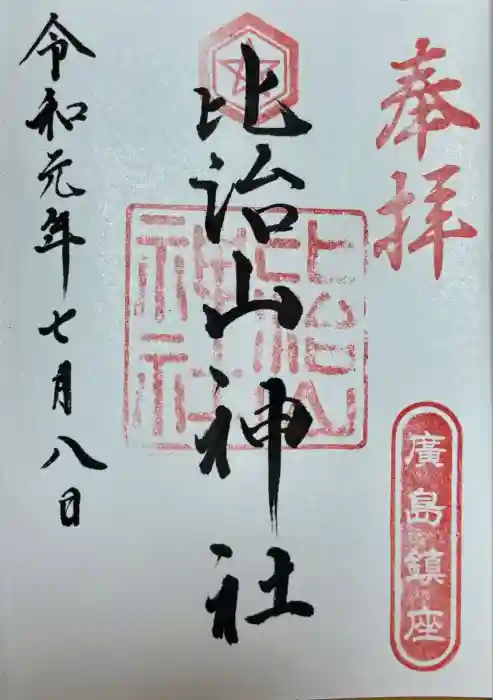 奉拝
廣島鎮座
比治山神社
比治山神社
令和元年七月八日